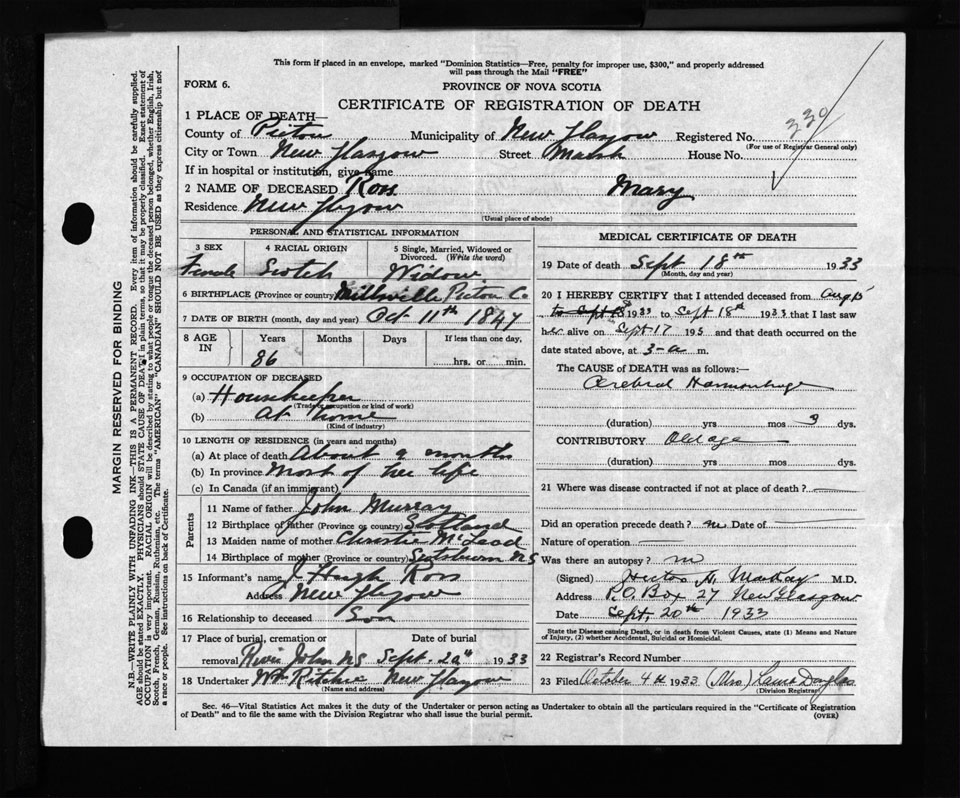 This form if placed in an envelope, marked "Dominion Statistics—Free, penalty for improper use, $300," and properly addressed
will pass through the Mail "FREE"
FORM 6.
PROVINCE OF NOVA SCOTIA
CERTIFICATE OF REGISTRATION OF DEATH
1 PLACE OF DEATH—
County of Pictou Municipality of New Glasgow Registered No. 330
(For use of Registrar General only)
City or Town New Glasgow Street Marsh House No.
If in hospital or institution, give name
2 NAME OF DECEASED Ross Mary
Residence New Glasgow
(Usual place of abode)
PERSONAL AND STATISTICAL INFORMATION
3 SEX 4 RACIAL ORIGIN 5 Single, Married, Widowed or Divorced. (Write the word)
Female Scotch Widow
6 BIRTHPLACE (Province or country) Millsville Pictou Co
7 DATE OF BIRTH (month, day and year) Oct 11th 1847
8 AGE IN Years Months Days If less than one day,
86 hrs. or min.
9 OCCUPATION OF DECEASED
(a) Housekeeper
(Trade, occupation or kind of work)
(b) At home
(Kind of industry)
10 LENGTH OF RESIDENCE (in years and months)
(a) At place of death About 9 months
(b) In province Most of her life
(c) In Canada (if an immigrant)
Parents
11 Name of father John Murray
12 Birthplace of father (Province or country) Scotland
13 Maiden name of mother Christie McLeod
14 Birthplace of mother (Province or country) Scotsburn NS
15 Informant's name J. Hugh Ross
Address New Glasgow
16 Relationship to deceased Son
17 Place of burial, cremation or Date of burial
removal River John NS Sept. 20th 1933
18 Undertaker Wm Ritchie New Glasgow
(Name and address)
MEDICAL CERTIFICATE OF DEATH
19 Date of death Sept 18th 1933
(Month, day and year)
20 I HEREBY CERTIFY that I attended deceased from Aug 15
1933 to Sept 18th 1933 that I last saw
her alive on Sept 17 193 and that death occurred on the
date stated above, at 3-a m.
The CAUSE OF DEATH was as follows:—
Cerebral Haemorrhage
(duration) yrs mos 3 dys.
CONTRIBUTORY Old age
(duration) yrs mos dys.
21 Where was disease contracted if not at place of death?
Did an operation precede death? no Date of
Nature of operation
Was there an autopsy? no
(Signed) Hector H. MacKay M.D.
Address P.O. Box 27 New Glasgow
Date Sept, 20th 1933
State the Disease causing Death, or in death from Violent Causes, state (1) Means and Nature
of Injury, (2) whether Accidental, Suicidal or Homicidal.
22 Registrar's Record Number
23 Filed October 4th 1933 (Mrs) Laura Douglas
(Division Registrar)
Sec. 46—Vital Statistics Act makes it the duty of the Undertaker or person acting as Undertaker to obtain all the particulars required in the "Certificate of Registration
of Death" and to file the same with the Division Registrar who shall issue the burial permit.
(OVER)
MARGIN RESERVED FOR BINDING
N.B.—WRITE PLAINLY WITH UNFADING INK—THIS IS A PERMANENT RECORD. Every item of information should be carefully supplied.
AGE should be stated EXACTLY. PHYSICIANS should STATE CAUSE OF DEATH in plain terms, so that it may be properly classified. Exact statement of
OCCUPATION is very important. RACIAL ORIGIN will be described by stating to what people or tongue the deceased person belonged, whether English, Irish,
Scotch, French, German, Russian, Ruthenian, etc. The terms "AMERICAN" or "CANADIAN" SHOULD NOT BE USED as they express citizenship but not
a race or people. See instructions on back of Certificate.